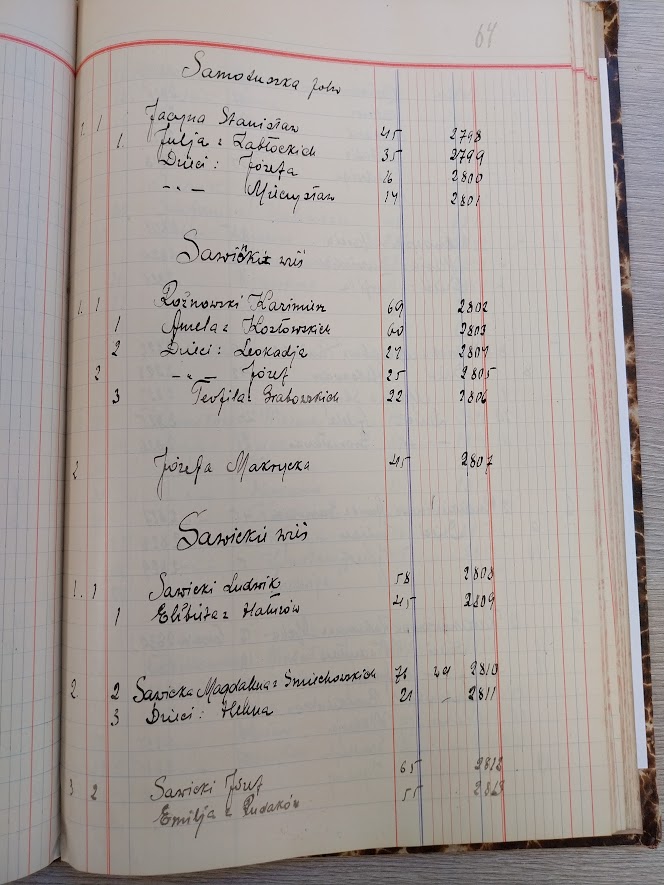 64
Samoduszka folw
1. 1 Jacyna Stanisław 45 2798
1 Julja z Zabłockich 35 2799
Dzieci: Józefa 16 2800
-"- Mieczysław 14 2801
wieś
1. 1 Rożnowski Kazimierz 69 2802
1 Aniela z Kozłowskich 60 2803
2 Dzieci: Leokadja 27 2804
2 -"- Józef 25 2805
3 Teofila Grabowskich 22 2806
2 Józefa Makrycka 45 2807
Sawickie wieś
1. 1 Sawicki Ludwik 58 2808
1 Elżbieta z 45 2809
2 2 Sawicka Magdalena z Śmiechowskich 76 2810
3 Dzieci: Helena 21 - 2811
3 2 Sawicki Józef 65 2812
Emilja z Rudaków 55 2813